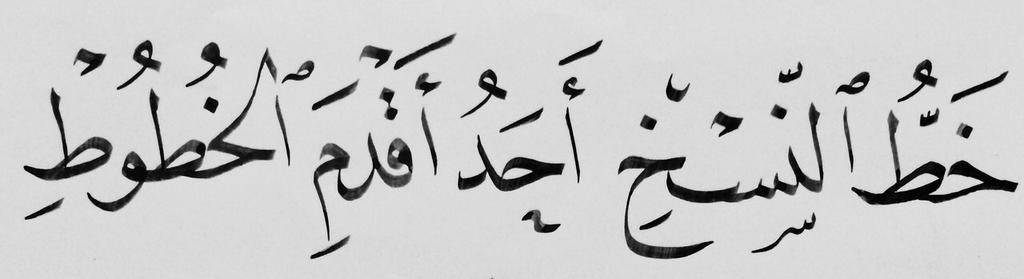 خَطُّ ٱلنَّسْخِ أَحَدُ أَقْدَمَ ٱلخُطُوطِ